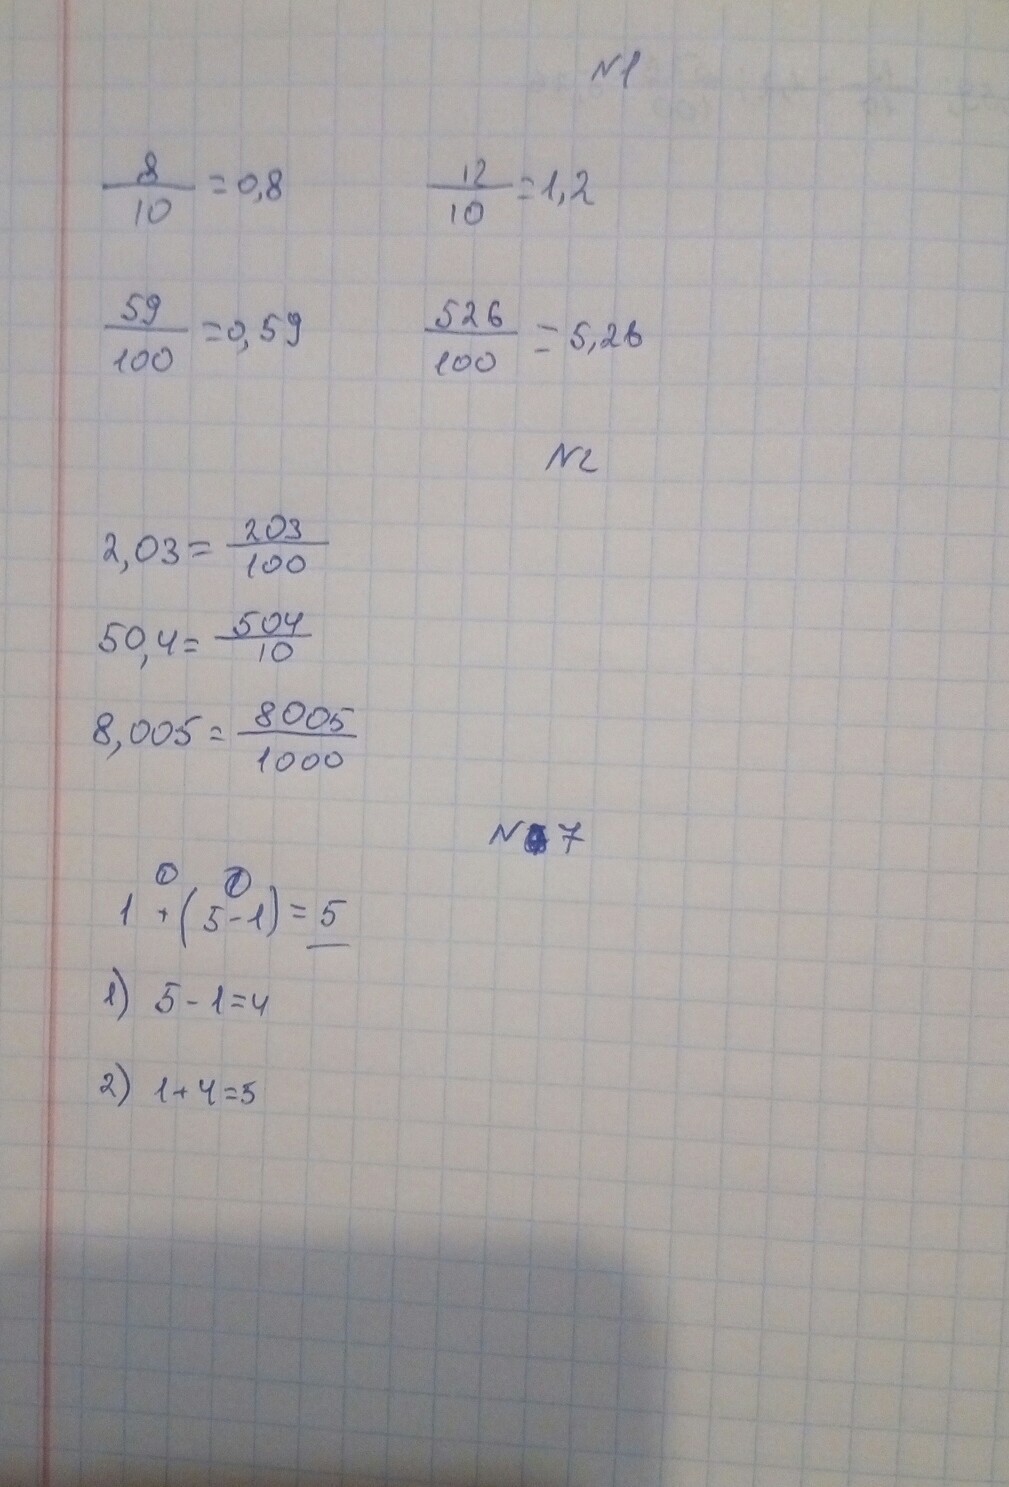 N1
8/10 = 0,8 12/10 = 1,2
59/100 = 0,59 526/100 = 5,26
N2
2,03 = 203/100
50,4 = 504/10
8,005 = 8005/1000
N 7
1 + (5 - 1) = 5
1) 5 - 1 = 4
2) 1 + 4 = 5